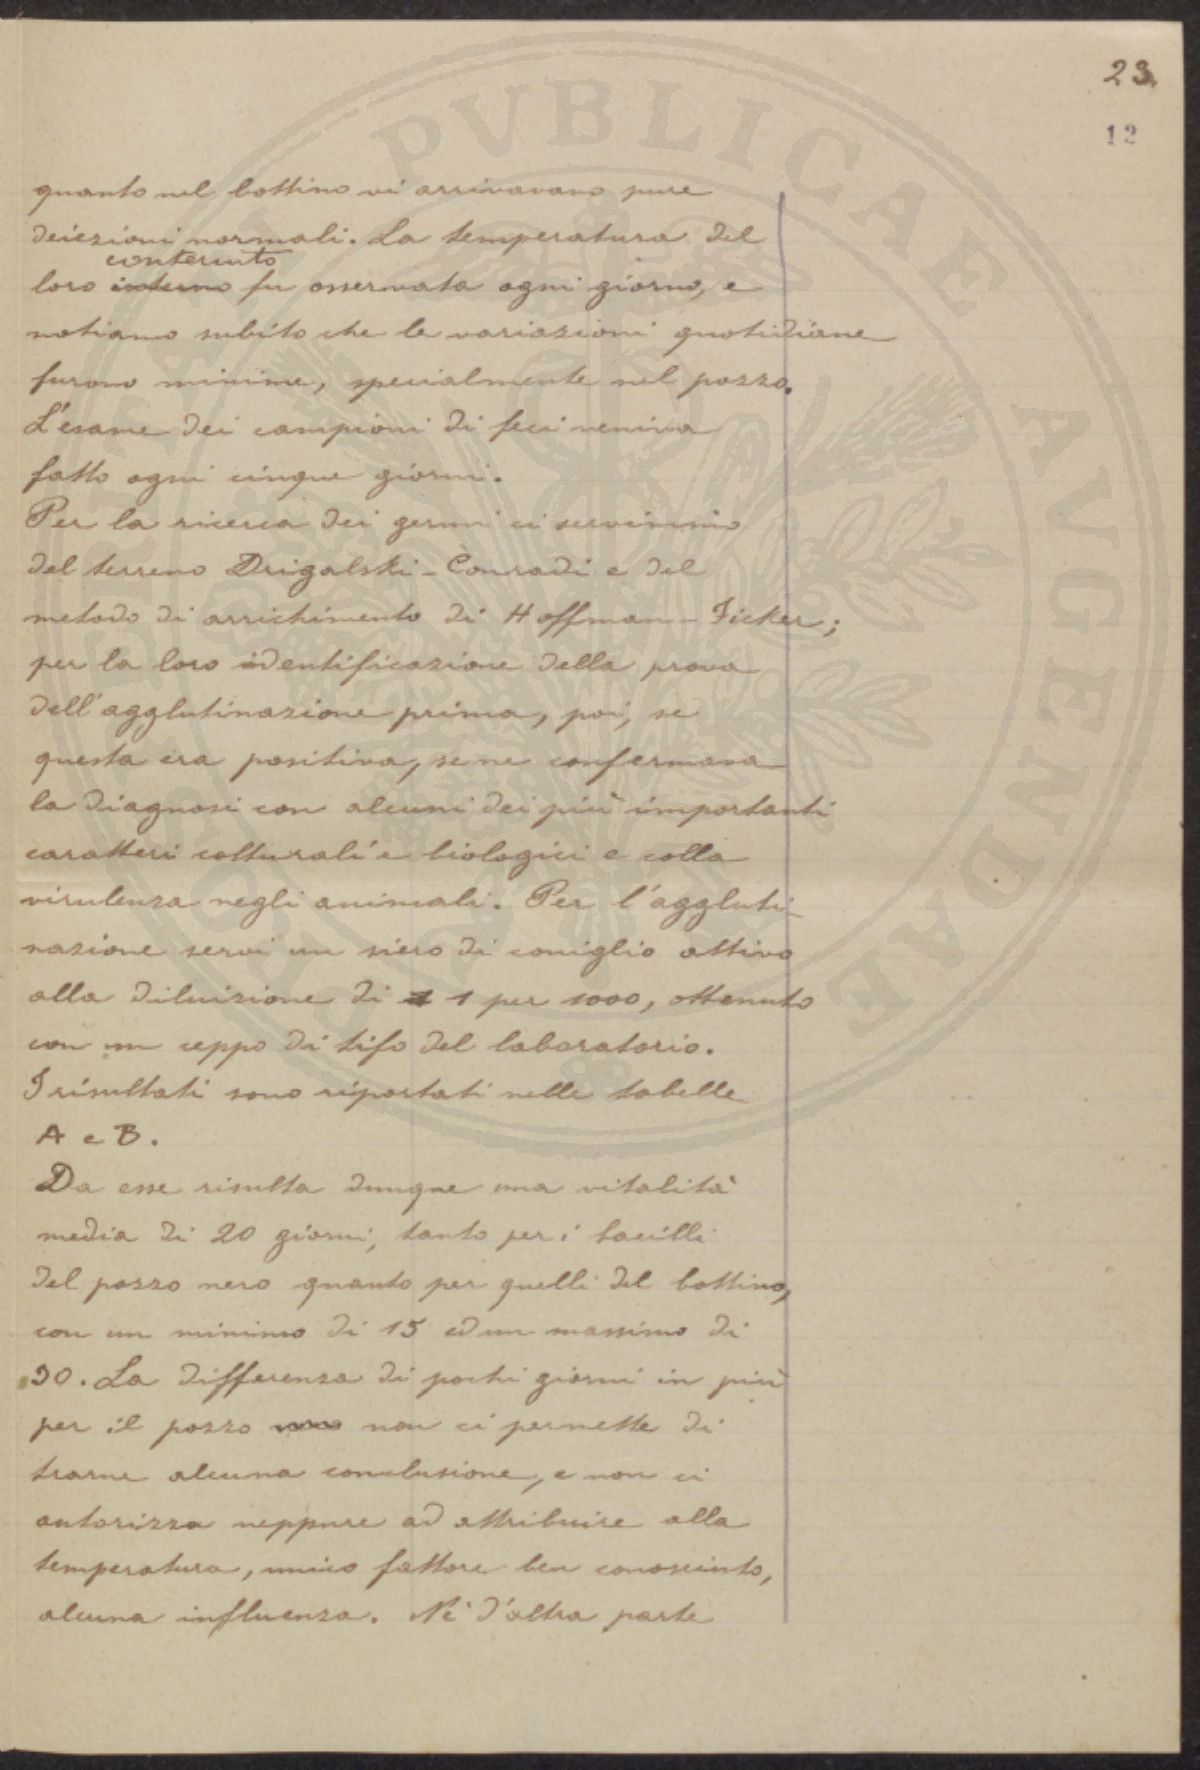 23.
12
quanto nel bottino vi arrivavano pure
deiezioni normali. La temperatura del
contenuto
loro interno fu osservata ogni giorno, e
notiamo subito che le variazioni quotidiane
furono minime, specialmente nel pozzo.
L'esame dei campioni di feci veniva
fatto ogni cinque giorni.
Per la ricerca dei germi ci servimmo
del terreno Drigalski-Conradi e del
metodo di arrichimento di Hoffman-Ficker;
per la loro identificazione della prova
dell'agglutinazione prima, poi, se
questa era positiva, se ne confermava
la diagnosi con alcuni dei più importanti
caratteri colturali e biologici e colla
virulenza negli animali. Per l'aggluti-
nazione servì un siero di coniglio attivo
alla diluizione di 1 per 1000, ottenuto
con un ceppo di tifo del laboratorio.
I risultati sono riportati nelle tabelle
A e B.
Da esse risulta dunque una vitalità
media di 20 giorni, tanto per i bacilli
del pozzo nero quanto per quelli del bottino,
con un minimo di 15 ed un massimo di
30. La differenza di pochi giorni in più
per il pozzo nero non ci permette di
trarne alcuna conclusione, e non ci
autorizza neppure ad attribuire alla
temperatura, unico fattore ben conosciuto,
alcuna influenza. Nè d'altra parte
PVBLICAE AVGENDAE